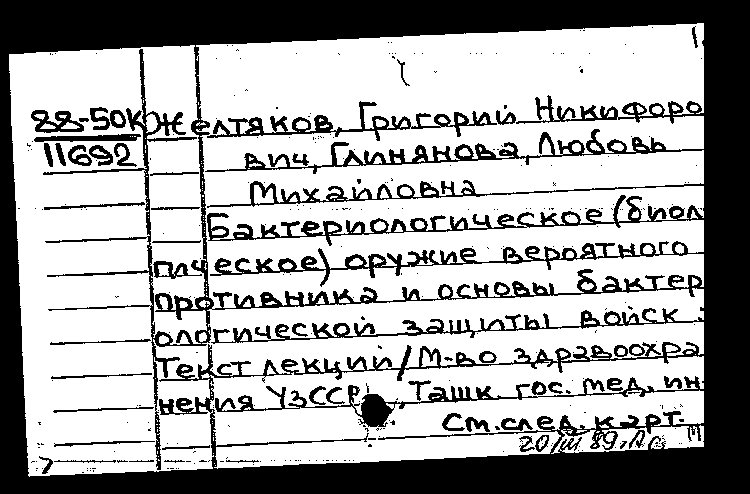 88-50К
11692
Желтяков, Григорий Никифоро
вич, Глинянова, Любовь
Михайловна
Бактериологическое (биол
гическое) оружие вероятного
противника и основы бактер
ологической защиты войск :
Текст лекций / М-во здравоохра
нения УзССР, Ташк. гос. мед. ин-
См. след. карт.
20/III 89